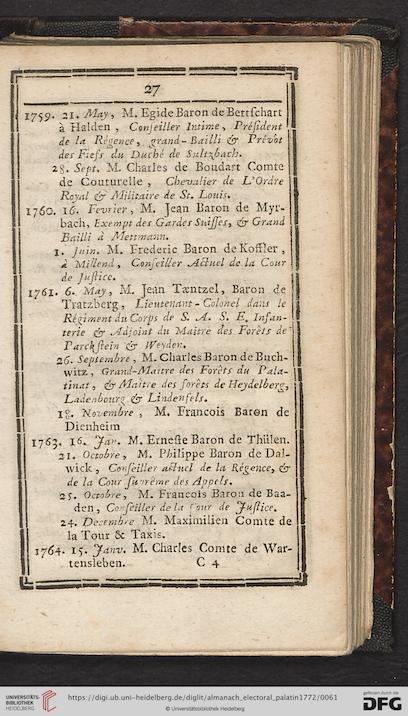 27
1759. 21. May, M. Egide Baron de Bertſchart
à Halden, Conſeiller Intime, Préſident
de la Régence, grand-Bailli & Prévot
des Fiefs du Duché de Sultzbach.
28. Sept. M. Charles de Boudart Comte
de Couturelle, Chevalier de L'Ordre
Royal & Militaire de St. Louis.
1760. 16. Fevrier, M. Jean Baron de Myr-
bach, Exempt des Gardes Suiſſes, & Grand
Bailli à Mettmann.
1. Juin. M. Frederic Baron de Koffler,
à Millend, Conſeiller Actuel de la Cour
de Juſtice.
1761. 6. May, M. Jean Tæntzel, Baron de
Tratzberg, Lieutenant-Colonel dans le
Régiment du Corps de S. A. S. E. Infan-
terie & Adjoint du Maitre des Forêts de
Parckſtein & Weyden.
26. Septembre, M. Charles Baron de Buch-
witz, Grand-Maitre des Forêts du Pala-
tinat, & Maitre des forêts de Heydelberg,
Ladenbourg & Lindenfels.
18. Novembre, M. Francois Baron de
Dienheim
1763. 16. Jan. M. Erneſte Baron de Thülen.
21. Octobre, M. Philippe Baron de Dal-
wick, Conſeiller actuel de la Régence, &
de la Cour ſuprême des Appels.
25. Octobre, M. Francois Baron de Baa-
den, Conſeiller de la Cour de Juſtice.
24. Decembre M. Maximilien Comte de
la Tour & Taxis.
1764. 15. Janv. M. Charles Comte de War-
tensleben. C 4
UNIVERSITÄTS-
BIBLIOTHEK
HEIDELBERG
https://digi.ub.uni-heidelberg.de/diglit/almanach_electoral_palatin1772/0061
© Universitätsbibliothek Heidelberg
gefördert durch die
DFG